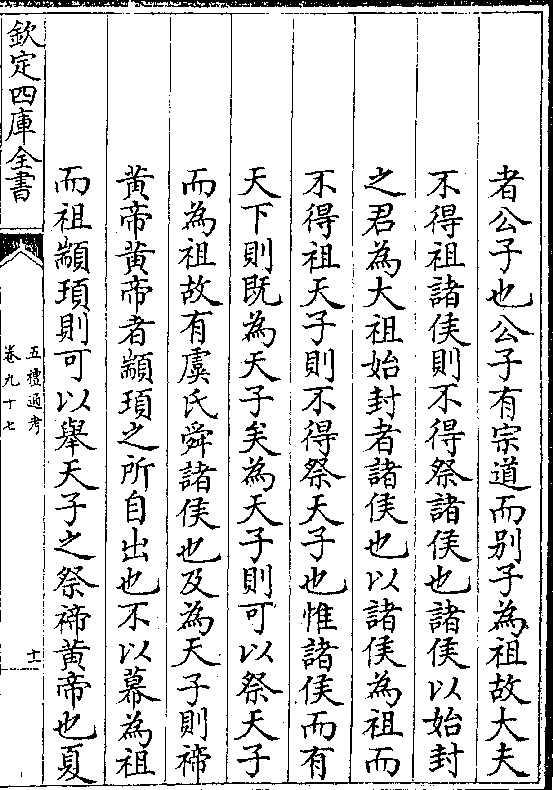 者公子也公子有宗道而别子為祖故大夫
不得祖諸侯則不得祭諸侯也諸侯以始封
之君為大祖始封者諸侯也以諸侯為祖而
不得祖天子則不得祭天子也惟諸侯而有
天下則既為天子矣為天子則可以祭天子
而為祖故有虞氏舜諸侯也及為天子則禘
黄帝黄帝者顓頊之所自出也不以幕為祖
而祖顓頊則可以舉天子之祭禘黄帝也夏
欽定四庫全書
五禮通考
卷九十七
十一